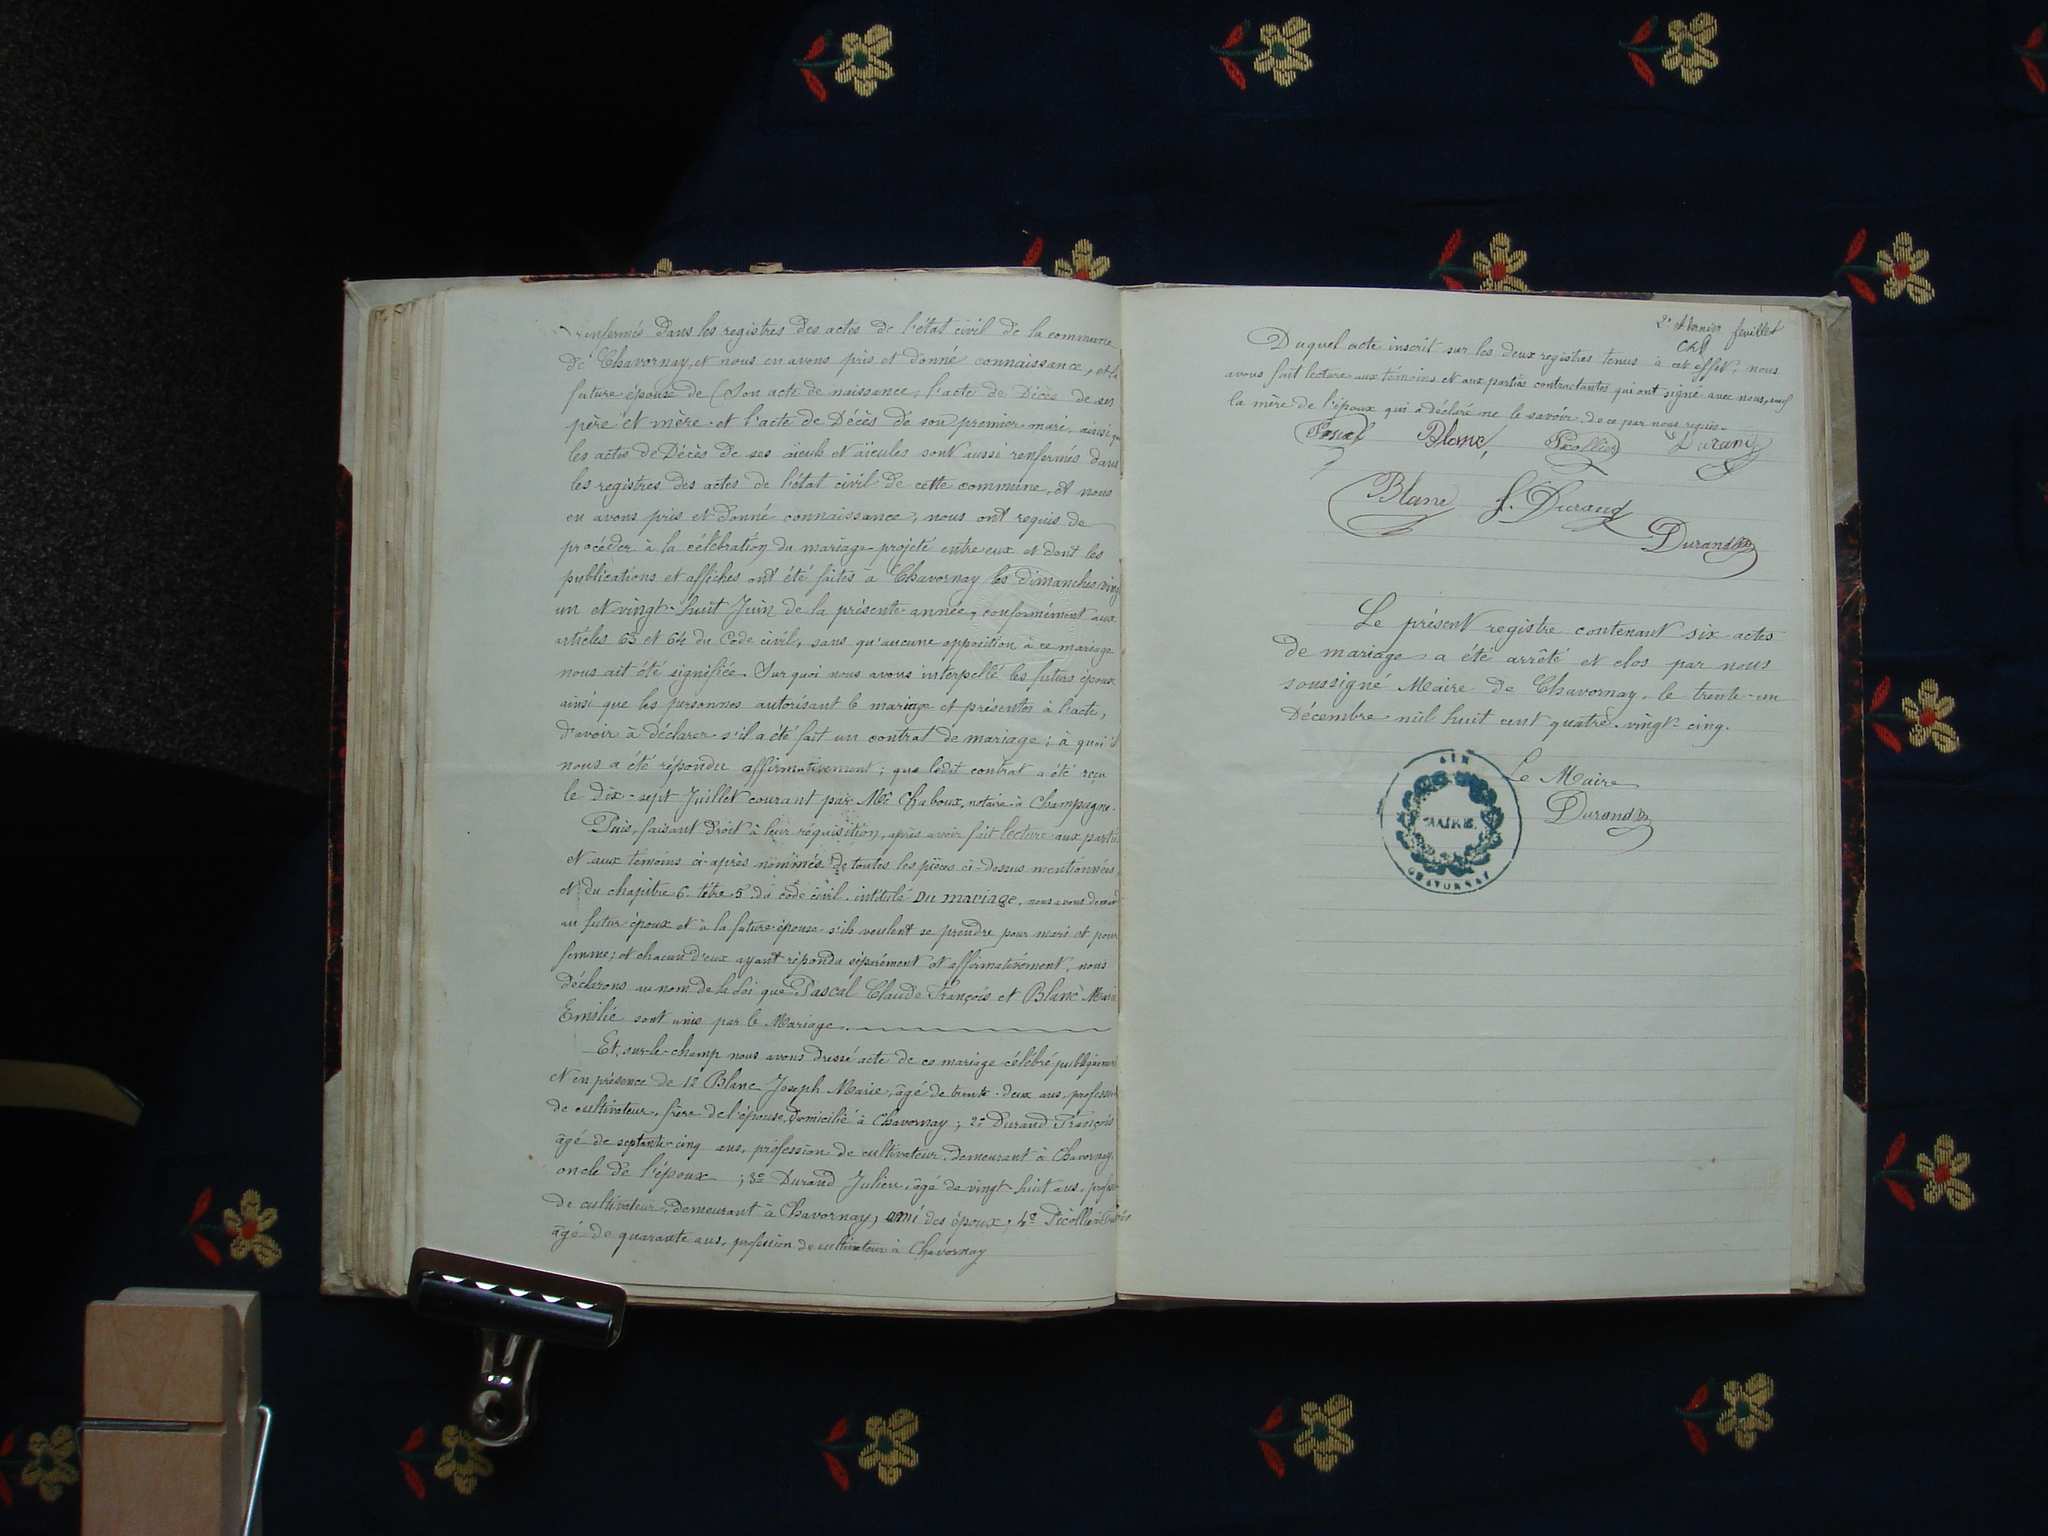 renfermés dans les registres des actes de l'état civil de la commune
de Chavornay, et nous en avons pris et donné connaissance, et la
future épouse de (Son acte de naissance, l'acte de Décès de ses
père et mère et l'acte de Décès de son premier mari, ainsi que
les actes de Décès de ses aïeuls et aïeules sont aussi renfermés dans
les registres des actes de l'état civil de cette commune, et nous
en avons pris et donné connaissance, nous ont requis de
procéder à la célébration du mariage projeté entre eux et dont les
publications et affiches ont été faites à Chavornay les dimanches vingt
un et vingt-huit Juin de la présente année, conformément aux
articles 63 et 64 du Code civil, sans qu'aucune opposition à ce mariage
nous ait été signifiée. Sur quoi nous avons interpellé les futurs époux
ainsi que les personnes autorisant le mariage et présentes à l'acte,
d'avoir à déclarer s'il a été fait un contrat de mariage; à quoi il
nous a été répondu affirmativement; que ledit contrat a été reçu
le dix-sept Juillet courant par Me Chaboux, notaire à Champagne.
Puis, faisant droit à leur réquisition, après avoir fait lecture aux parties
et aux témoins ci-après nommés de toutes les pièces ci-dessus mentionnées,
et du chapitre 6 titre 5 du code civil, intitulé Du mariage, nous avons demandé
au futur époux et à la future épouse s'ils veulent se prendre pour mari et pour
femme; et chacun d'eux ayant répondu séparément et affirmativement, nous
déclarons au nom de la Loi que Pascal Claude François et Blanc Marie
Emilie sont unis par le Mariage.
Et, sur-le-champ nous avons dressé acte de ce mariage célébré publiquement
et en présence de 1º Blanc Joseph Marie, âgé de trente-deux ans, profession
de cultivateur, frère de l'épouse, Domicilié à Chavornay; 2º Durand François
âgé de septante-cinq ans, profession de cultivateur, demeurant à Chavornay,
oncle de l'époux ; 3º Durand Julien, âgé de vingt-huit ans, profession
de cultivateur, demeurant à Chavornay, ami des époux, 4º Picollier
âgé de quarante ans, profession de cultivateur à Chavornay
2e et dernier feuillet
Duquel acte inscrit sur les deux registres tenus à cet effet, nous
avons fait lecture aux témoins et aux parties contractantes qui ont signé avec nous, sauf
la mère de l'époux qui a déclaré ne le savoir de ce par nous requis.
Pascal Blanc Picollier Durand
Blanc J. Durand
Durand
Le présent registre contenant six actes
de mariage a été arrêté et clos par nous
soussigné Maire de Chavornay, le trente-un
Décembre mil huit cent quatre-vingt-cinq.
Le Maire
Durand
AIN
MAIRIE
CHAVORNAY